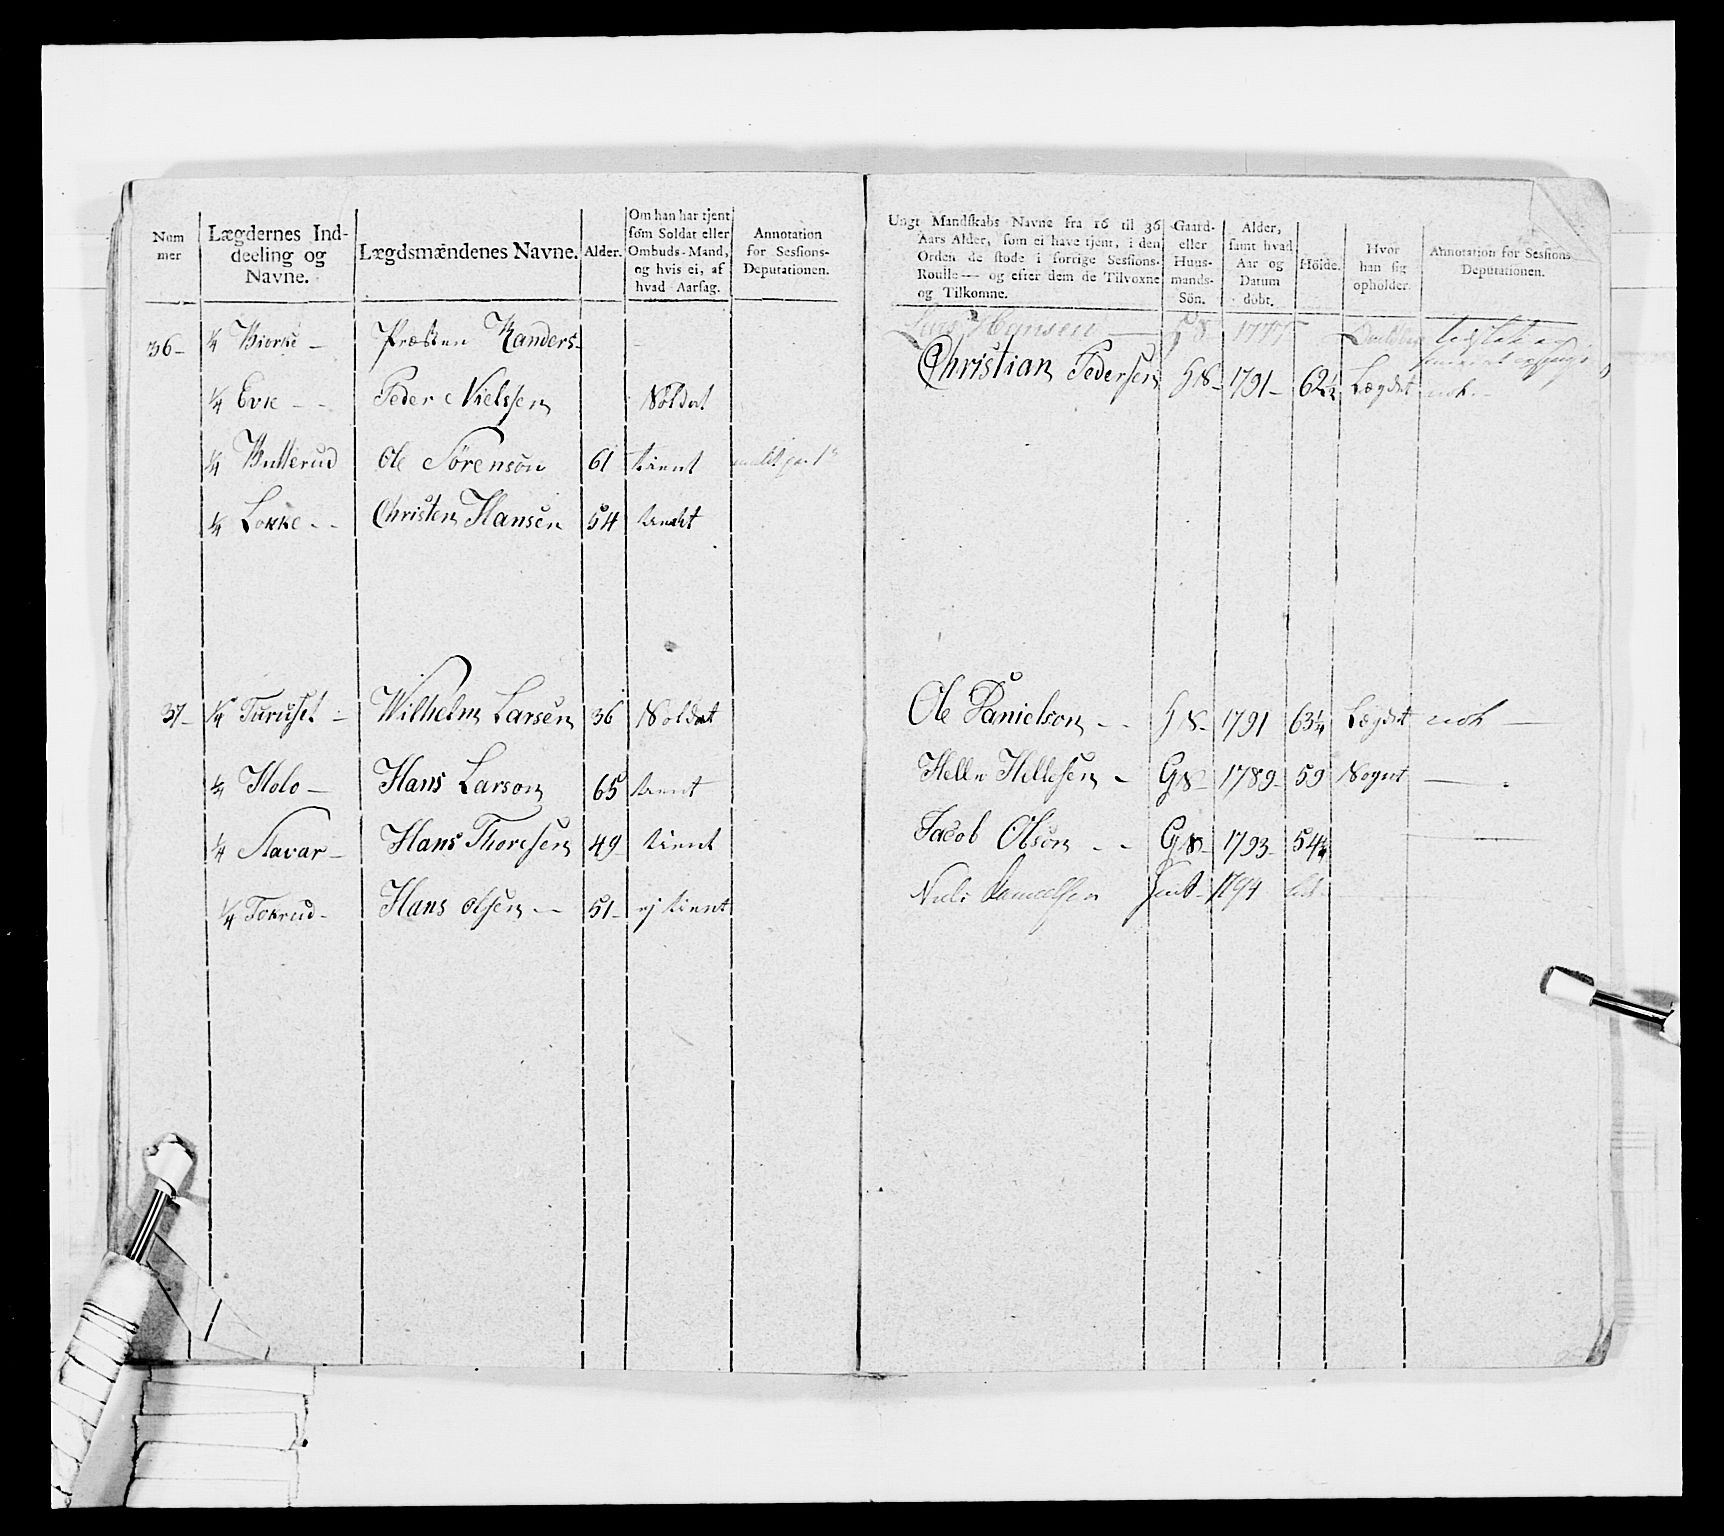 Num
mer
Lægdernes Ind-
deeling og
Navne.
Lægdsmændenes Navne.
Alder.
Om han har tjent
som Soldat eller
Ombuds-Mand,
og hvis ei, af
hvad Aarsag.
Annotation
for Sessions-
Deputationen.
Ungt Mandskabs Navne fra 16 til 36
Aars Alder, som ei have tjent, i den
Orden de stode i forrige Sessions-
Roulle — og efter dem de Tilvoxne
og Tilkomne.
Gaard-
eller
Huus-
mands-
Sön.
Alder,
samt hvad
Aar og
Datum
döbt.
Höide.
Hvor
han sig
opholder.
Annotation for Sessions
Deputationen.
36 - ¼ Biørke - Præsten Randers -
¼ Evje - - Peder Nielsen Soldat
¼ Butterud Ole Sørensøn 61 tient
¼ Løkke - - Christen Hansen 54 tient
37 - ¼ Turuset - Wilhelm Larsen 36 Soldat
¼ Holo - Hans Larson 65 tient
¼ Stavar - Hans Thoresen 49 tient
¼ Tokrud - Hans olsen - - 51 - ej tient
Lars Hansen - 1777
Christian Pedersen HS - 1791 - 62½ Lægdet nok -
Ole Danielson - - HS - 1791 63¼ Lægdet nok -
Helle Hellesen - GS - 1789 - 59 Sognet -
Jacob Olsøn - - GS - 1793 - 54¼
Niels 1794